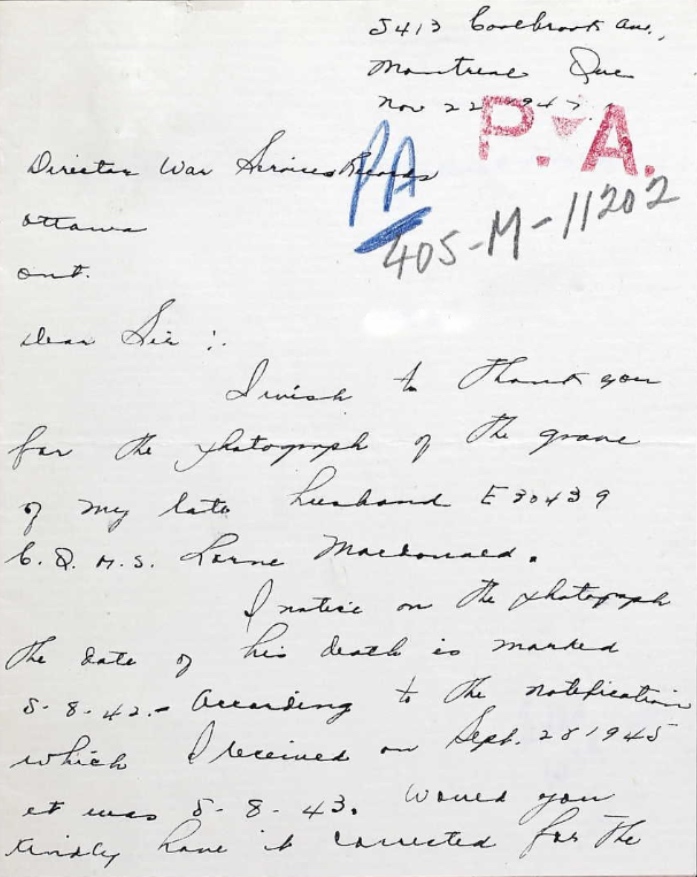 5413 Coolbrook Ave.,
Montreal Que
Nov 22 1947.
P.A.
PA
405-M-11202
Director War Services Records
Ottawa
Ont.
Dear Sir:
I wish to thank you
for the photograph of the grave
of my late husband E30439
C.Q.M.S. Lorne Macdonald.
I notice on the photograph
the date of his death is marked
5-8-42.- According to the notification
which I received on Sept. 28 1945
it was 5-8-43. Would you
kindly have it corrected for the